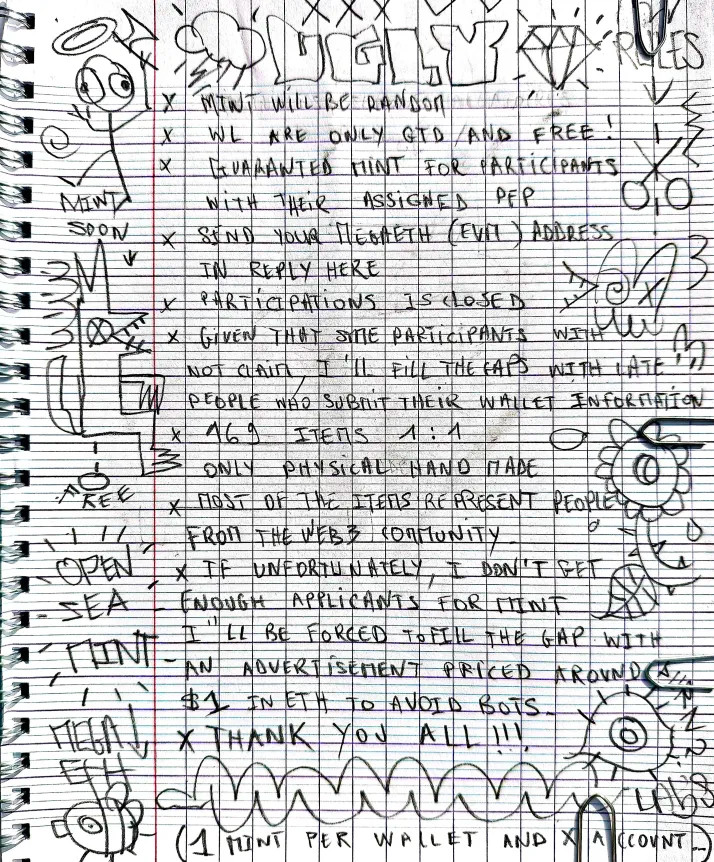 XXX
UGLY RULES
X MINT WILL BE RANDOM
X WL ARE ONLY GTD AND FREE!
X GUARANTED MINT FOR PARTICIPANTS
WITH THEIR ASSIGNED PFP
X SEND YOUR MEGAETH (EVM) ADDRESS
IN REPLY HERE
X PARTICIPATIONS IS CLOSED
X GIVEN THAT SME PARTICIPANTS WITH
NOT CLAIM, I'LL FILL THE GAPS WITH LATE
PEOPLE WHO SUBMIT THEIR WALLET INFORMATION
X 169 ITEMS 1:1
ONLY PHYSICAL HAND MADE
X MOST OF THE ITEMS REPRESENT PEOPLE
FROM THE WEB3 COMMUNITY
X IF UNFORTUNATELY, I DON'T GET
ENOUGH APPLICANTS FOR MINT
I"LL BE FORCED TO FILL THE GAP WITH
AN ADVERTISEMENT PRICED AROUND
$1 IN ETH TO AVOID BOTS
X THANK YOU ALL!!!
(1 MINT PER WALLET AND X ACCOUNT_)
MINT
SOON
FREE
OPEN
SEA
MINT
MEGA
ETH
LABS